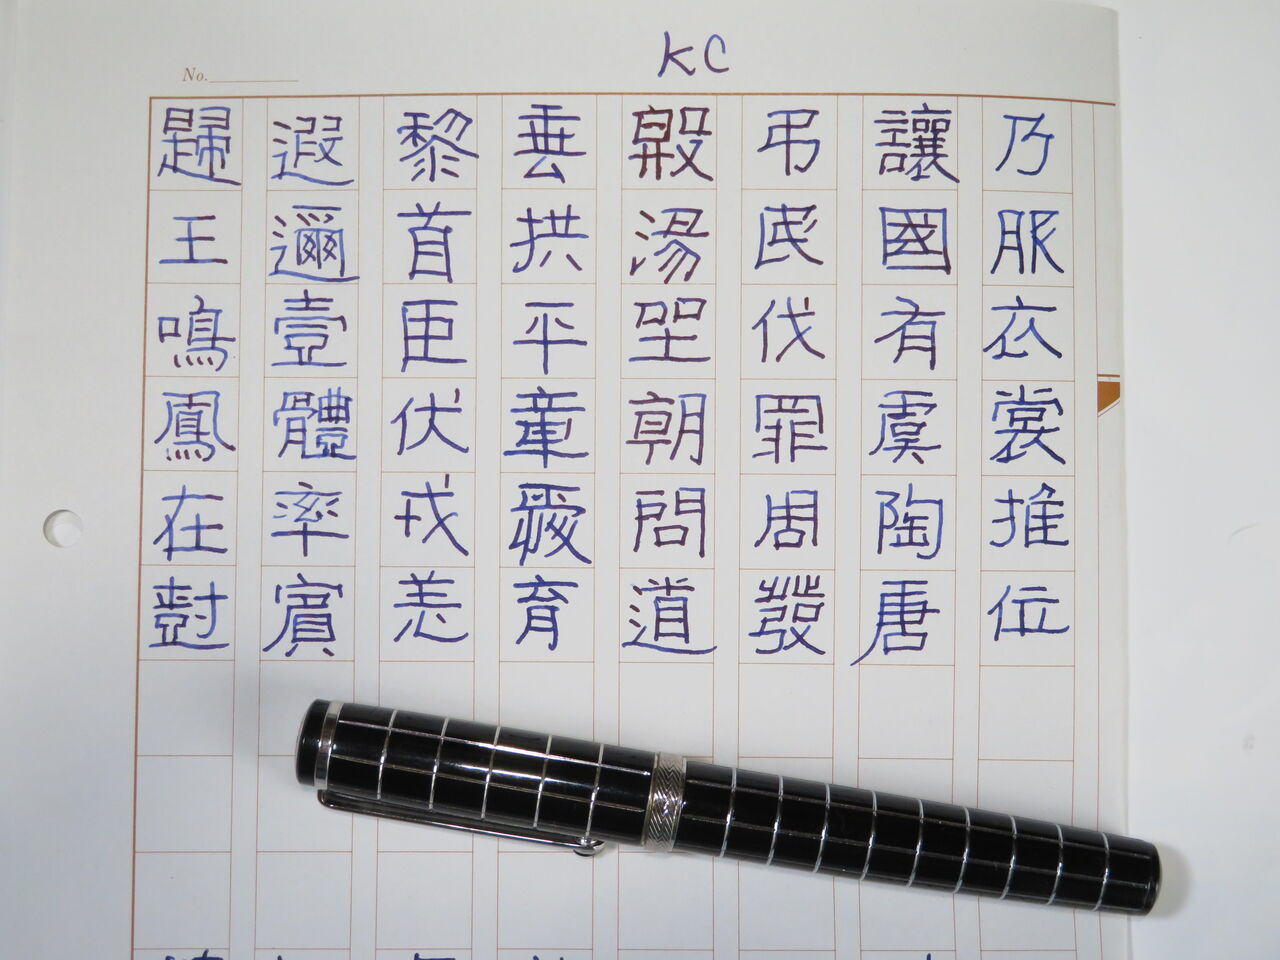 KC
No.
乃服衣裳推位
讓國有虞陶唐
弔民伐罪周發
殷湯坐朝問道
垂拱平章愛育
黎首臣伏戎羌
遐邇壹體率賓
歸王鳴鳳在樹